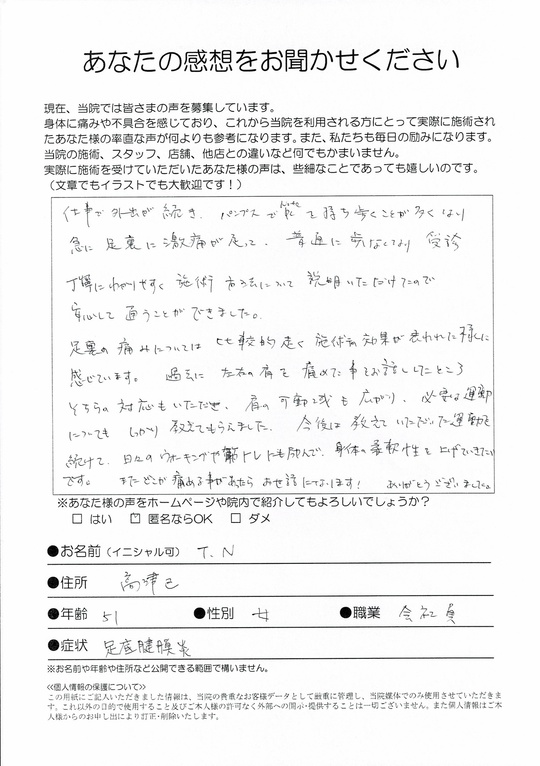 あなたの感想をお聞かせください
現在、当院では皆さまの声を募集しています。
身体に痛みや不具合を感じており、これから当院を利用される方にとって実際に施術され
たあなた様の率直な声が何よりも参考になります。また、私たちも毎日の励みになります。
当院の施術、スタッフ、店舗、他店との違いなど何でもかまいません。
実際に施術を受けていただいたあなた様の声は、些細なことであっても嬉しいのです。
(文章でもイラストでも大歓迎です!)
仕事で外出が続き、パンプスで を持ち歩くことが多くなり
急に足裏に激痛が走って、普通に歩けなくなり受診
丁寧にわかりやすく施術方法について説明いただけたので
安心して通うことができました。
足裏の痛みについては比較的速く施術の効果が表われた様に
感じています。過去に左右の肩を痛めた事をお話ししたところ
そちらの対応もいただき、肩の可動域も広がり、必要な運動
についてもしっかり教えてもらえました。今後は教えていただいた運動を
続けて、日々のウォーキングや筋トレにも励んで、身体の柔軟性を上げていきたい
です。またどこか痛める事があったらお世話になります!ありがとうございました。
※あなた様の声をホームページや院内で紹介してもよろしいでしょうか?
□ はい □ 匿名ならOK □ ダメ
●お名前(イニシャル可) T.N
●住所 高津区
●年齢 51 ●性別 女 ●職業 会社員
●症状 足底腱膜炎
※お名前や年齢や住所など公開できる範囲で構いません。
<<個人情報の保護について>>
この用紙にご記入いただきました情報は、当院の貴重なお客様データとして厳重に管理し、当院媒体でのみ使用させていただきま
す。これ以外の目的で使用すること及びご本人様の許可なく外部への開示・提供することは一切ございません。また個人情報はご本
人様からのお申し出により訂正・削除いたします。